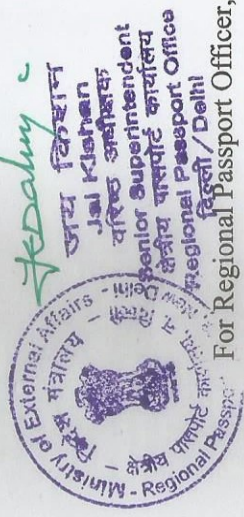 जय किशन
Jai Kishan
वरिष्ठ अधीक्षक
Senior Superintendent
क्षेत्रीय पासपोर्ट कार्यालय
Regional Passport Office
दिल्ली / Delhi
For Regional Passport Officer,
Ministry of External Affairs -
विदेश मंत्रालय
- क्षेत्रीय पासपोर्ट कार्यालय, न
- Regional Passpo
New Delhi